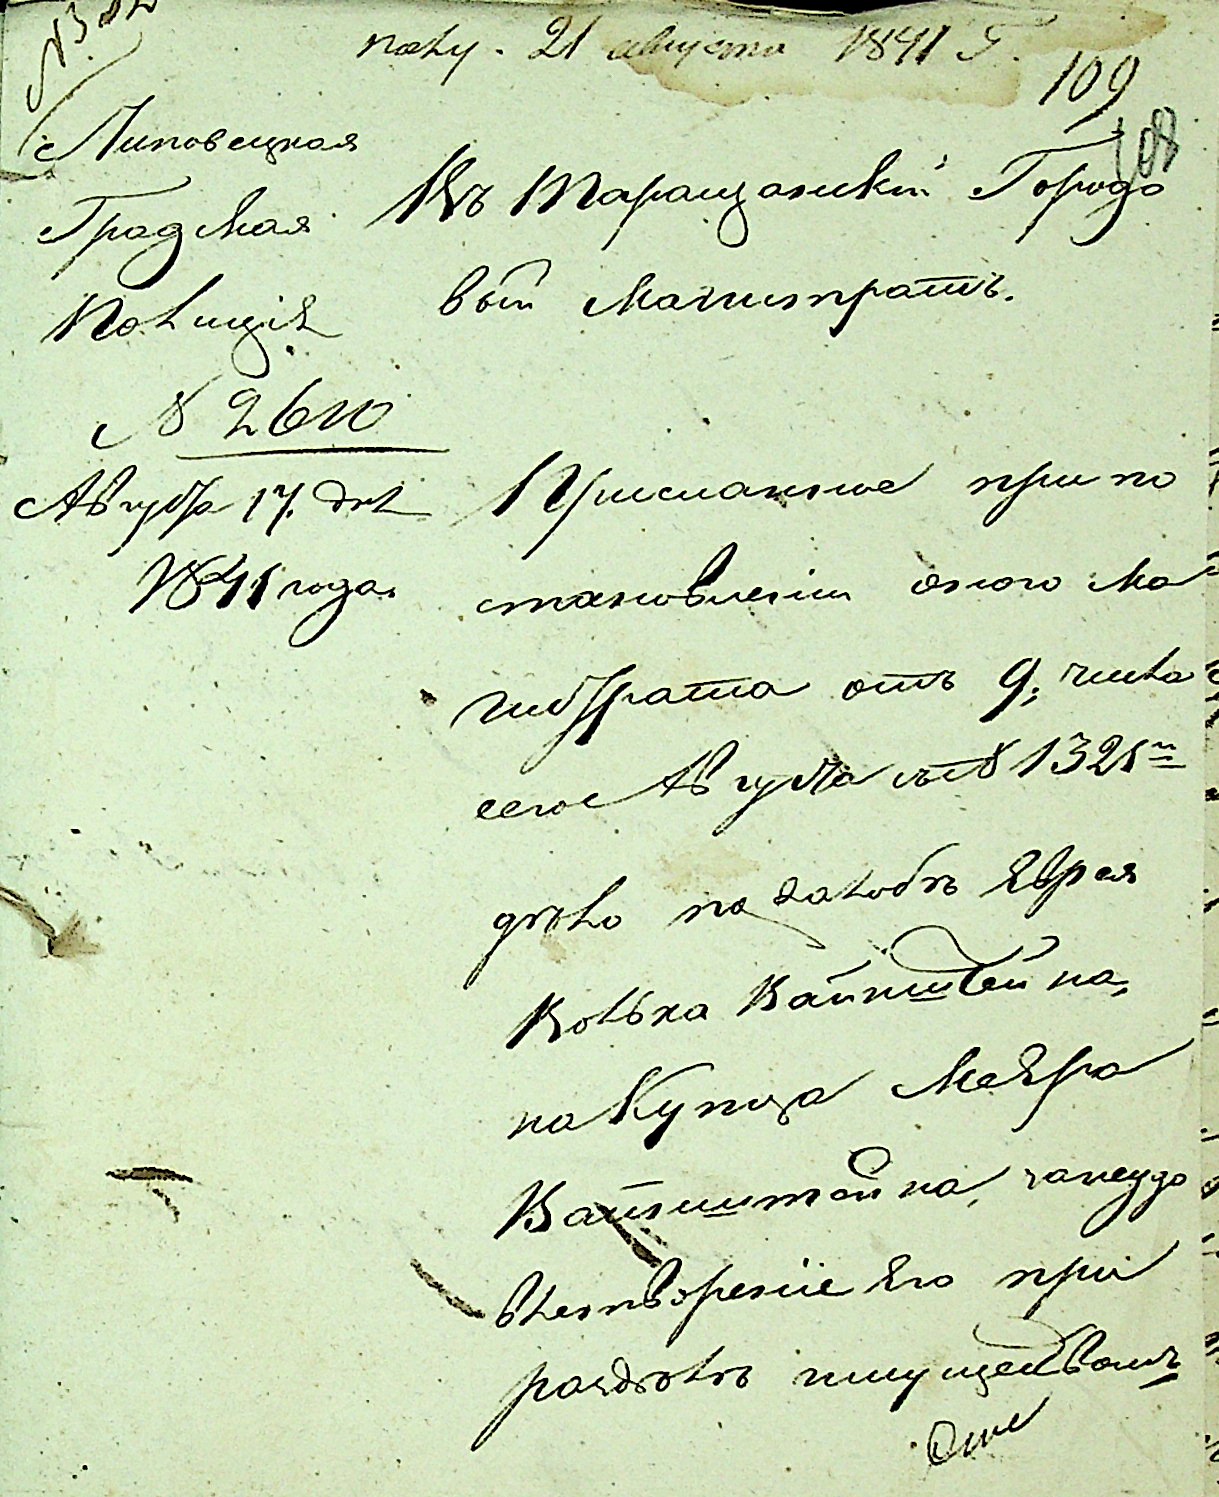 полу. 21 августа 1841 Г.
109
108
Липовецкая
Градская
Полиція
№ 2610
Августа 17. дня
1841 года.
Въ Таращанскій Городо
вый Магистратъ.
Присланное при по
становленіи оного Ма
гистрата отъ 9; числа
сего Августа за № 1321м
дѣло по жалобѣ Еврея
Волька Вайнштейна,
на Купца Меера
Вайнштейна, за неудо
влетвореніе Его при
раздѣлѣ имуществомъ